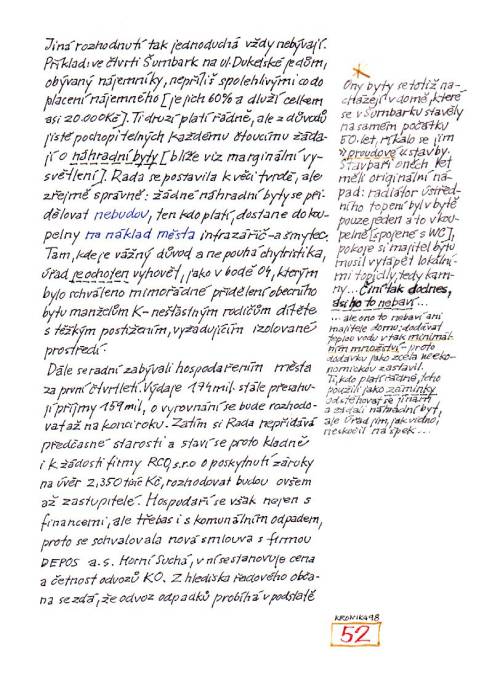 Jiná rozhodnutí tak jednoduchá vždy nebývají.
Příklad: ve čtvrti Šumbark na ul. Dukelské je dům,
obývaný nájemníky, nepříliš spolehlivými co do
placení nájemného [je jich 60% a dluží celkem
asi 20.000Kč]. Ti druzí platí řádně, ale z důvodů
jistě pochopitelných každému čtoucímu žáda-
jí o náhradní byty [blíže viz marginální vy-
světlení]. Rada se postavila k věci tvrdě, ale
zřejmě správně: žádné náhradní byty se při-
dělovat nebudou, ten kdo platí, dostane do kou-
pelny na náklad města infrazářič - a šmytec.
Tam, kde je vážný důvod a ne pouhá chytristika,
úřad je ochoten vyhovět, jako v bodě 04, kterým
bylo schváleno mimořádné přidělení obecního
bytu manželům K - nešťastným rodičům dítěte
s těžkým postižením, vyžadujícím izolované
prostředí.
Dále se radní zabývali hospodařením města
za první čtvrtletí. Výdaje 174 mil. stále přesahu-
jí příjmy 159 mil., o vyrovnání se bude rozhodo-
vat až na konci roku. Zatím si Rada nepřidává
předčasné starosti a staví se proto kladně
i k žádosti firmy RCQ s.r.o o poskytnutí záruky
na úvěr 2,350 tisíc Kč, rozhodovat budou ovšem
až zastupitelé. Hospodaří se však nejen s
financemi, ale třebas i s komunálním odpadem,
proto se schvalovala nová smlouva s firmou
DEPOS a.s. Horní Suchá, v ní se stanovuje cena
a četnost odvozů KO. Z hlediska řadového obča-
na se zdá, že odvoz odpadků probíhá v podstatě
Ony byty se totiž na-
cházejí v domě, které
se v Šumbarku stavěly
na samém počátku
50. let, říkalo se jim
"proudové" ustavby.
Stavbaři oněch let
měli originální ná-
pad: radiátor ústřed-
ního topení byl v bytě
pouze jeden a to v kou-
pelně [spojené s WC],
pokoje si majitel bytu
musil vytápět lokální-
mi topidly, tedy kam-
ny... Činí tak dodnes,
asi ho to nebaví...
... ale ono to nebaví ani
majitele domu: dodávat
teplou vodu v tak minimál-
ním množství - proto
dodávku jako zcela neeko-
nomickou zastavil.
Ti, kdo platí řádně, toho
použili jako záminky
odstěhovat se jinam
a žádali náhradní byt,
ale úřad jim, jak vidno,
neskočil na špek...
KRONIKA 98
52